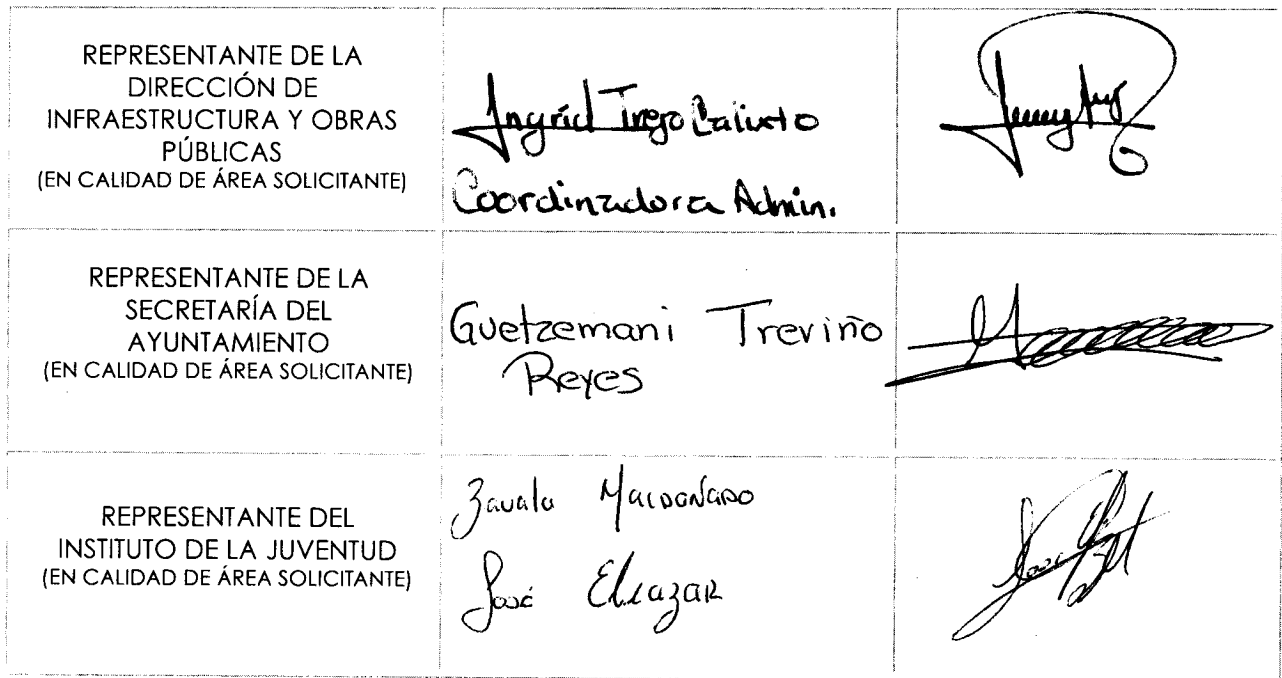 REPRESENTANTE DE LA
DIRECCIÓN DE
INFRAESTRUCTURA Y OBRAS
PÚBLICAS
(EN CALIDAD DE ÁREA SOLICITANTE)
Ingrid Trejo Calixto
Coordinadora Admin.
REPRESENTANTE DE LA
SECRETARÍA DEL
AYUNTAMIENTO
(EN CALIDAD DE ÁREA SOLICITANTE)
Guetzemani Treviño
Reyes
REPRESENTANTE DEL
INSTITUTO DE LA JUVENTUD
(EN CALIDAD DE ÁREA SOLICITANTE)
Zavala Maldonado
José Eleazar